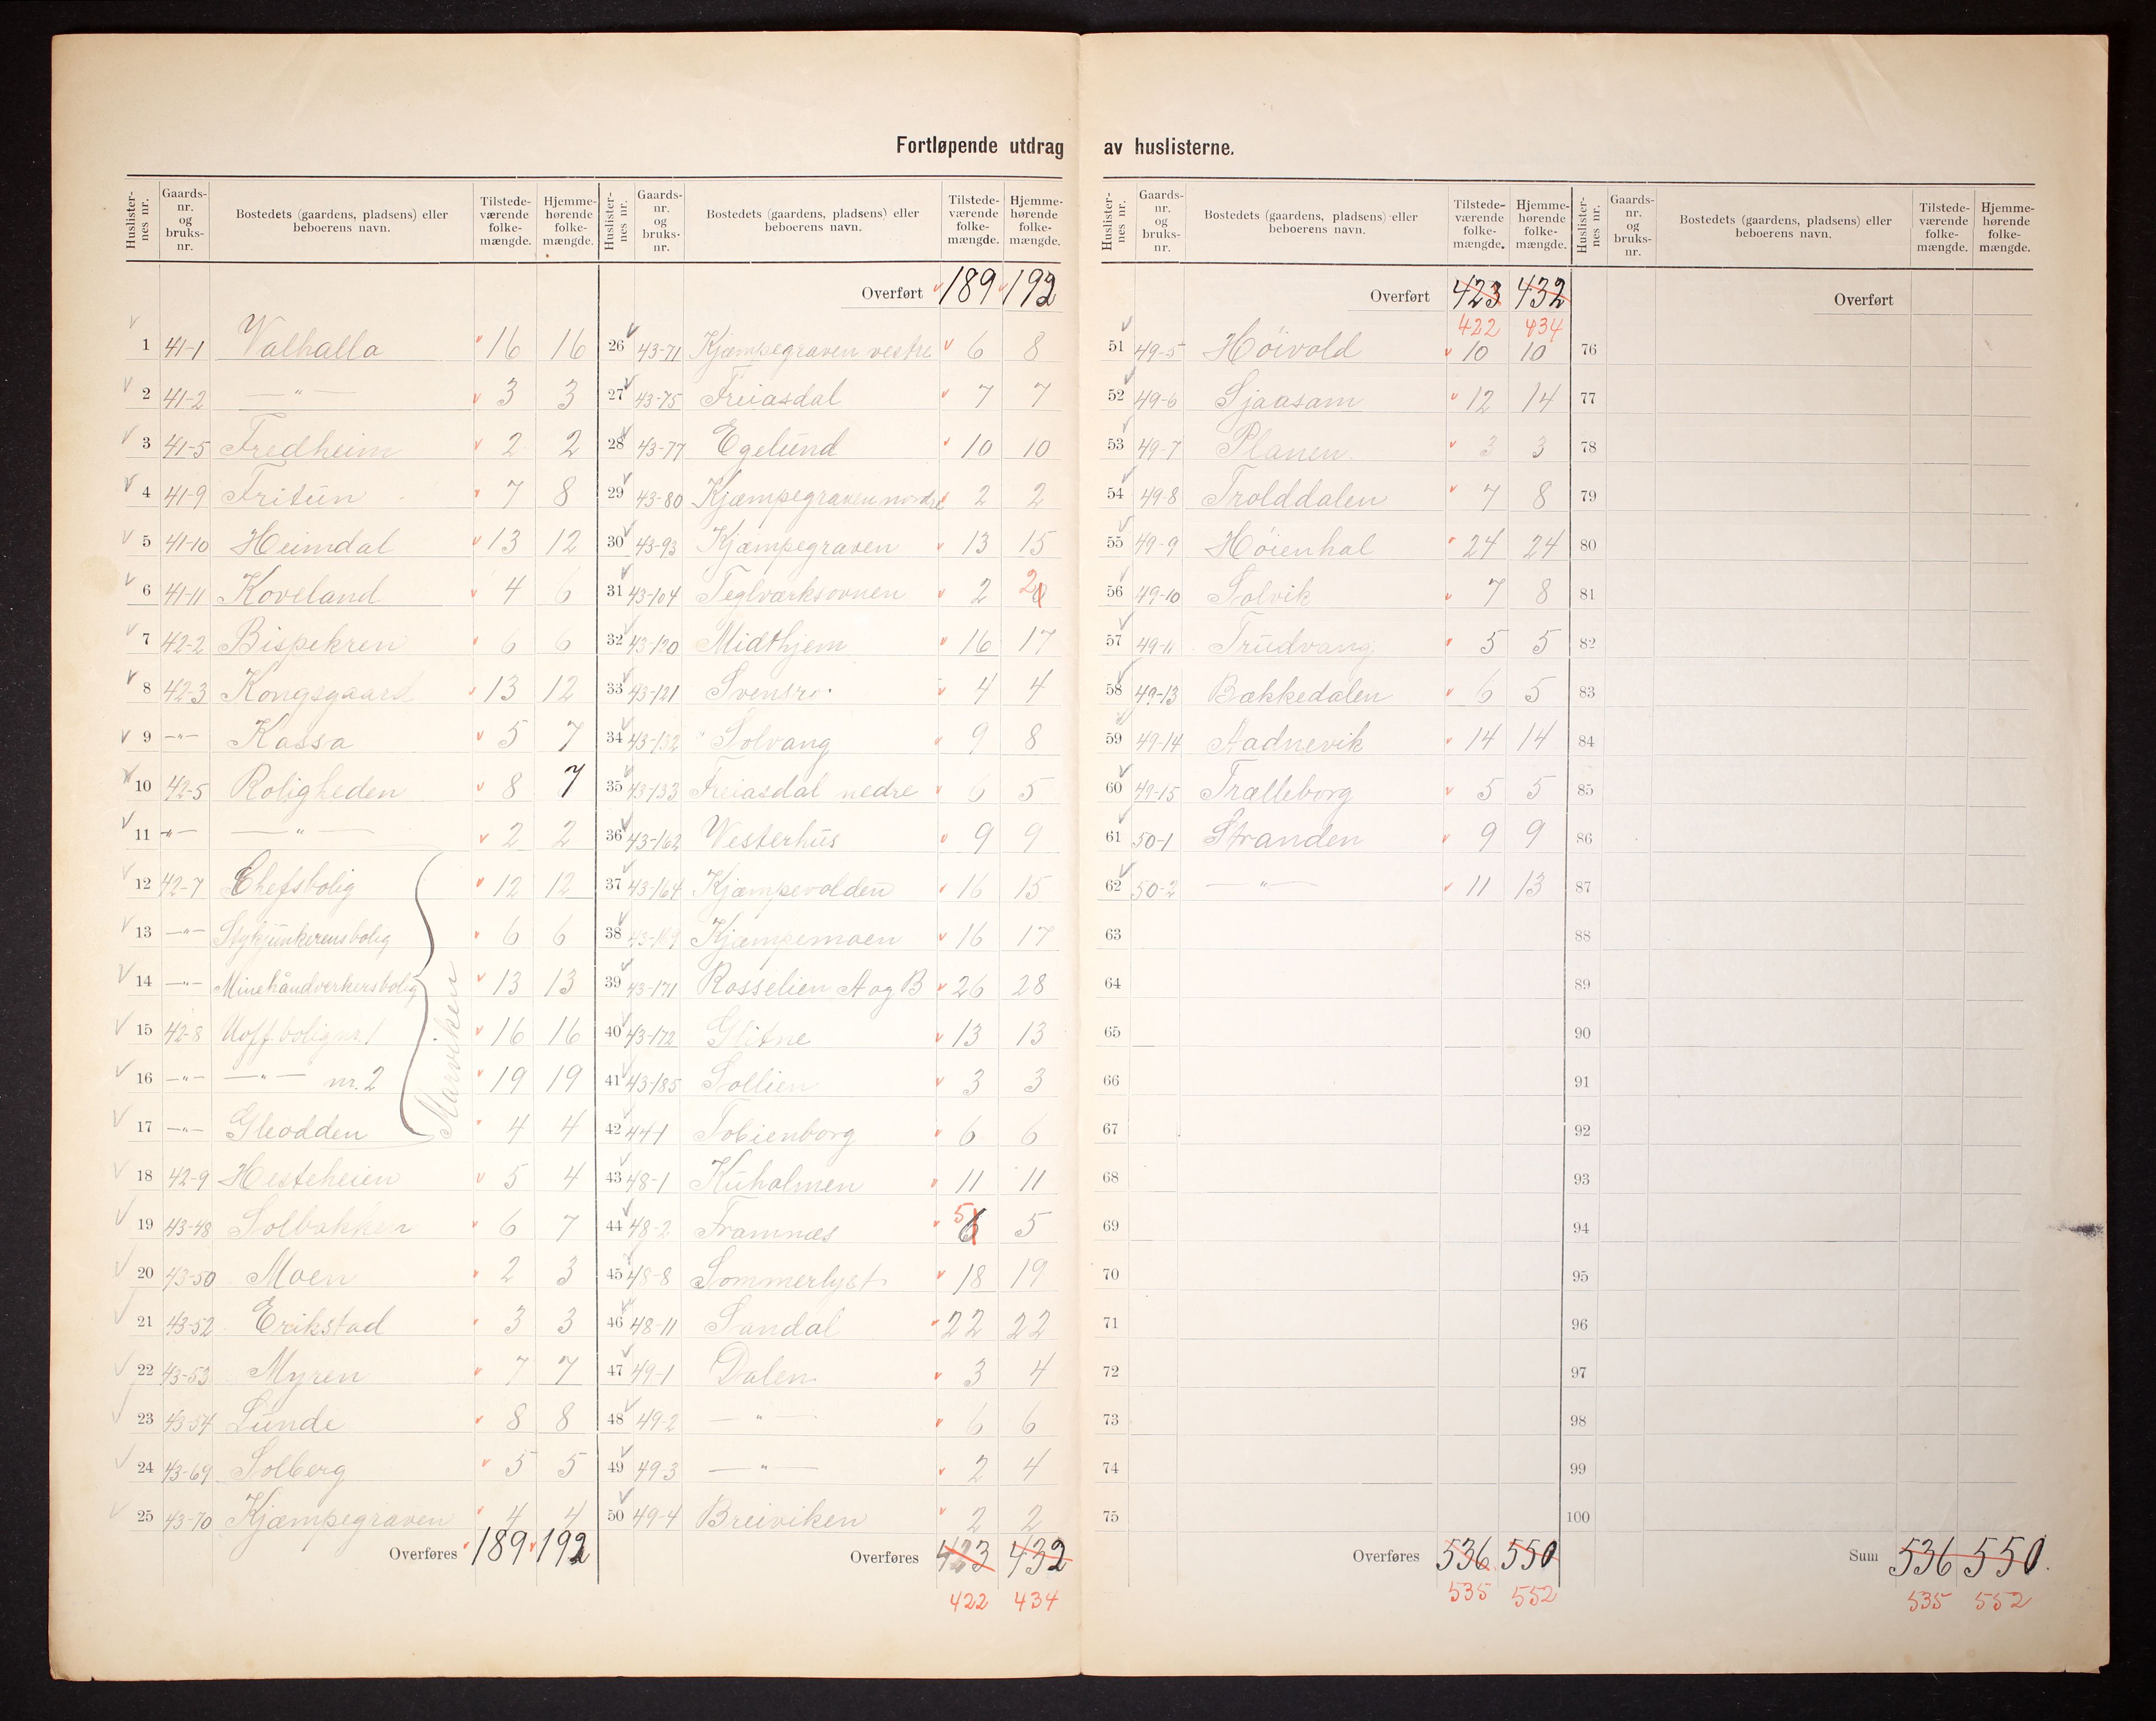 Fortløpende utdrag av huslisterne.
Huslisternes nr. Gaards-nr. og bruks-nr. Bostedets (gaardens, pladsens) eller beboerens navn. Tilstede-værende folke-mængde. Hjemme-hørende folke-mængde.
1 41-1 Valhalla 16 16
2 41-2 —"— 3 3
3 41-5 Fredheim 2 2
4 41-9 Fritun 7 8
5 41-10 Heimdal 13 12
6 41-11 Koveland 4 6
7 42-2 Bispekren 6 6
8 42-3 Kongsgaard 13 12
9 —"— Kassa 5 7
10 42-5 Roligheden 8 7
11 —"— —"— 2 2
12 42-7 Chefsbolig 12 12
13 —"— Stykjunkerensbolig 6 6
14 —"— Minehåndverkersbolig 13 13
15 42-8 Uoff.bolig nr. 1 16 16
16 —"— —"— nr. 2 19 19
17 —"— Gleodden 4 4
Marviken
18 42-9 Hesteheien 5 4
19 43-48 Solbakken 6 7
20 43-50 Moen 2 3
21 43-52 Erikstad 3 3
22 43-53 Myren 7 7
23 43-54 Lunde 8 8
24 43-69 Solberg 5 5
25 43-70 Kjæmpegraven 4 4
Overføres 189 192
Huslisternes nr. Gaards-nr. og bruks-nr. Bostedets (gaardens, pladsens) eller beboerens navn. Tilstede-værende folke-mængde. Hjemme-hørende folke-mængde.
Overført 189 192
26 43-71 Kjæmpegraven vestre 6 8
27 43-75 Freiasdal 7 7
28 43-77 Egelund 10 10
29 43-80 Kjæmpegraven nordre 2 2
30 43-93 Kjæmpegraven 13 15
31 43-104 Teglværksovnen 2 2
32 43-120 Midthjem 16 17
33 43-121 Svensro 4 4
34 43-132 Solvang 9 8
35 43-133 Freiasdal nedre 6 5
36 43-162 Vesterhus 9 9
37 43-164 Kjæmpevolden 16 15
38 43-169 Kjæmpemoen 16 17
39 43-171 Rosselien A og B 26 28
40 43-172 Glitne 13 13
41 43-185 Sollien 3 3
42 44-1 Tobienborg 6 6
43 48-1 Kuholmen 11 11
44 48-2 Framnæs 5 6 5
45 48-8 Sommerlyst 18 19
46 48-11 Sandal 22 22
47 49-1 Dalen 3 4
48 49-2 —"— 6 6
49 49-3 —"— 2 4
50 49-4 Breiviken 2 2
Overføres 423 432
422 434
Huslisternes nr. Gaards-nr. og bruks-nr. Bostedets (gaardens, pladsens) eller beboerens navn. Tilstede-værende folke-mængde. Hjemme-hørende folke-mængde.
Overført 423 432
422 434
51 49-5 Høivold 10 10
52 49-6 Sjaasam 12 14
53 49-7 Planen 3 3
54 49-8 Trolddalen 7 8
55 49-9 Høienhal 24 24
56 49-10 Solvik 7 8
57 49-11 Trudvang 5 5
58 49-13 Bækkedalen 6 5
59 49-14 Aadnevik 14 14
60 49-15 Trælleborg 5 5
61 50-1 Stranden 9 9
62 50-2 —"— 11 13
63
64
65
66
67
68
69
70
71
72
73
74
75
Overføres 536 550
535 552
Huslisternes nr. Gaards-nr. og bruks-nr. Bostedets (gaardens, pladsens) eller beboerens navn. Tilstede-værende folke-mængde. Hjemme-hørende folke-mængde.
Overført
76
77
78
79
80
81
82
83
84
85
86
87
88
89
90
91
92
93
94
95
96
97
98
99
100
Sum 536 550.
535 552